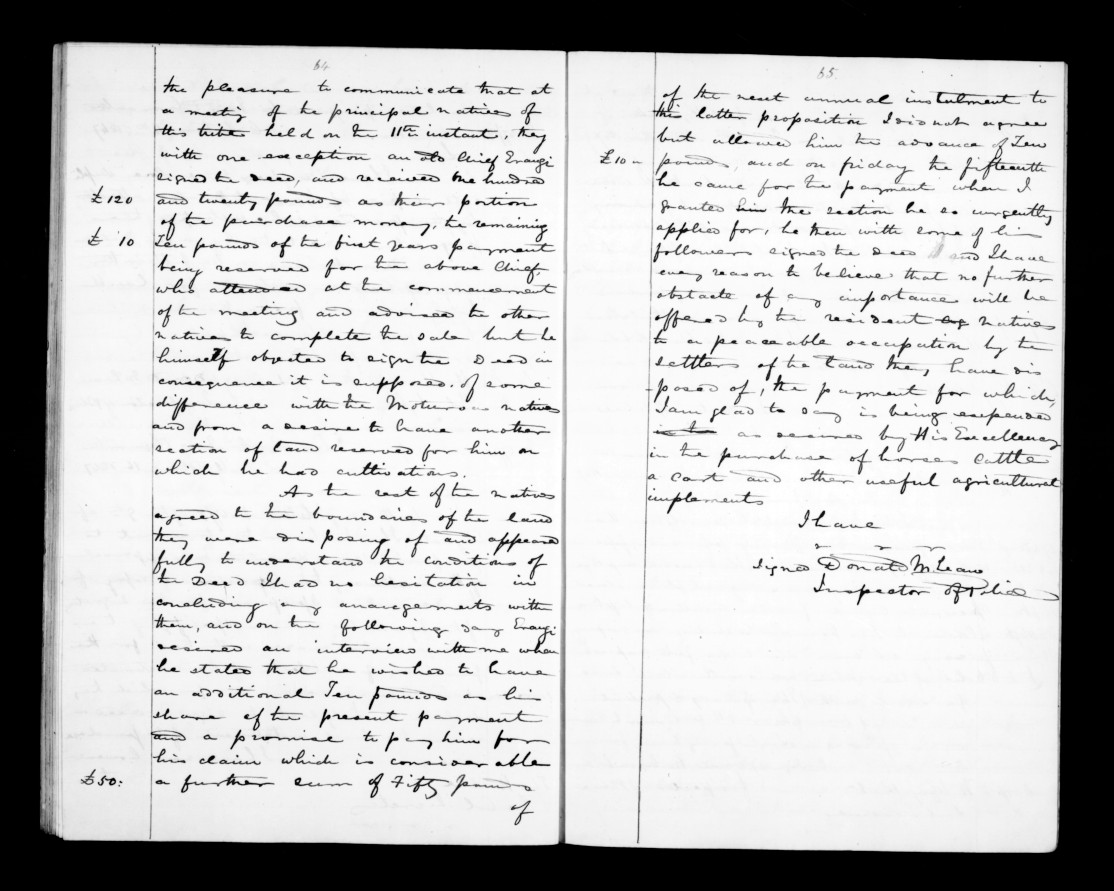 64
the pleasure to communicate that at
a meeting of the principal natives of
this tribe held on the 11th instant, they
with one exception an old Chief Erangi
signed the Deed, and received One hundred
£ 120 and twenty pounds as their portion
of the purchase money, the remaining
£ 10 Ten pounds of the first years payment
being reserved for the above Chief
who attended at the commencement
of the meeting and advised the other
natives to complete the Sale but he
himself obected to sign the Deed in
consequence it is supposed of some
difference with the natives
and from a desire to have another
section of land reserved for him on
which he had cultivations.
As the rest of the natives
agreed to the boundaries of the land
they were disposing of and appeared
fully to understand the conditions of
the Deed I had no hesitation in
concluding my arrangements with
them, and on the following day Erangi
desired an interview with me when
he stated that he wished to have
an additional Ten pounds as his
share of the present payment
and a promise to pay him for
his claim which is considerable
£50: a further sum of Fifty pounds
of
65
of the next annual instulment to
this latter proposition I did not agree
but allowed him the advance of Ten
£10 pounds, and on friday the fifteenth
he came for the payment when I
granted him the section he so urgently
applied for, he then with some of his
followers signed the Deed and I have
every reason to believe that no further
obstacle of any importance will be
offered by the resident natives
to a peaceable occupation by the
settlers of the land they have dis
-posed of, the payment for which,
I am glad to say is being expended
as desired by His Excellency
in the purchase of horses Cattle
a cart and other useful agricultural
implements
I have
" " "
signed Donald McLean
Inspector of Police